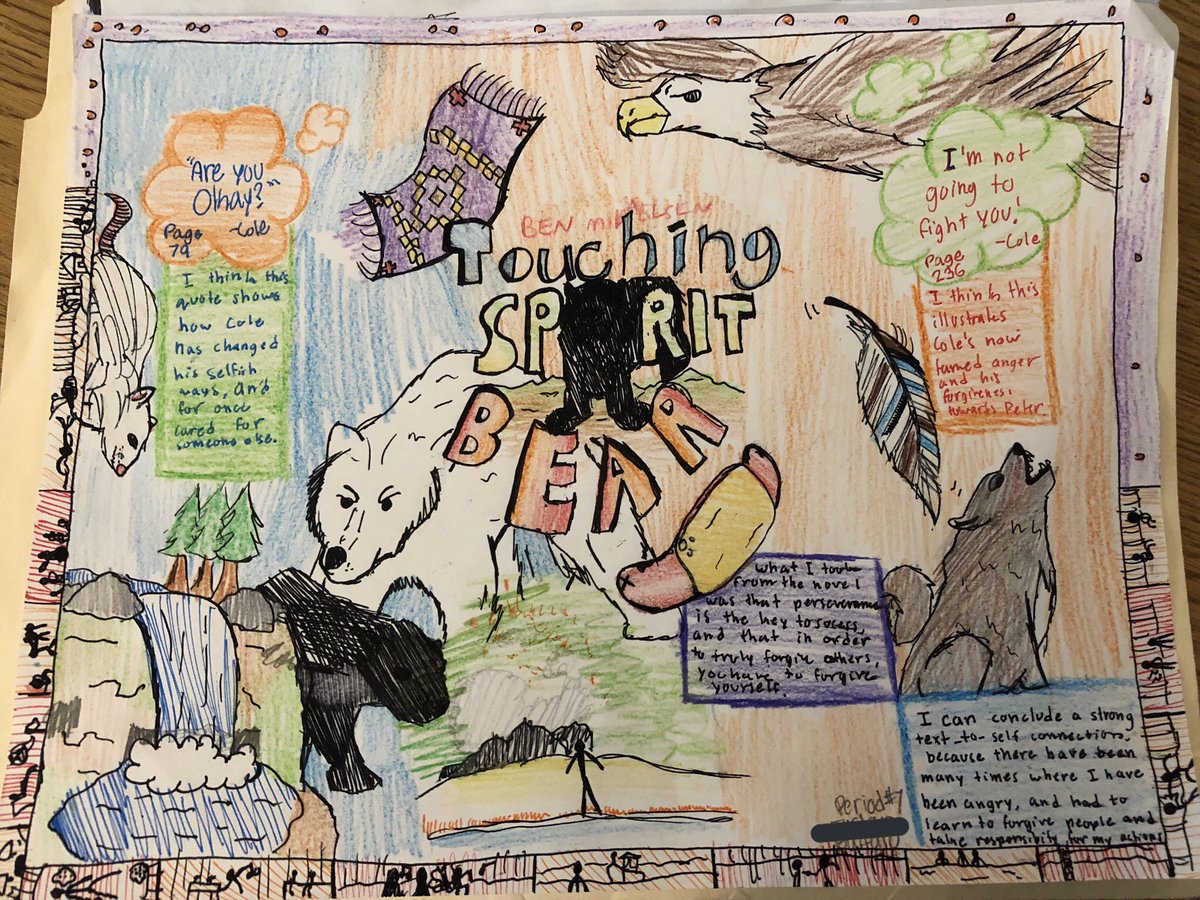 "Are you
Okay?"
Page -Cole
79
I think this
quote shows
how Cole
has changed
his selfish
ways, and
for once
cared for
someone else.
BEN MIKAELSEN
Touching
SPIRIT
BEAR
I'm not
going to
fight you!
-Cole
Page
236
I think this
illustrates
Cole's now
tamed anger
and his
forgiveness
towards Peter
what I took
from the novel
was that perseverance
is the key to sucess,
and that in order
to truly forgive others,
you have to forgive
yourself.
I can conclude a strong
text-to-self connection.
because there have been
many times where I have
been angry, and had to
learn to forgive people and
take responsibility for my actions
Period#7